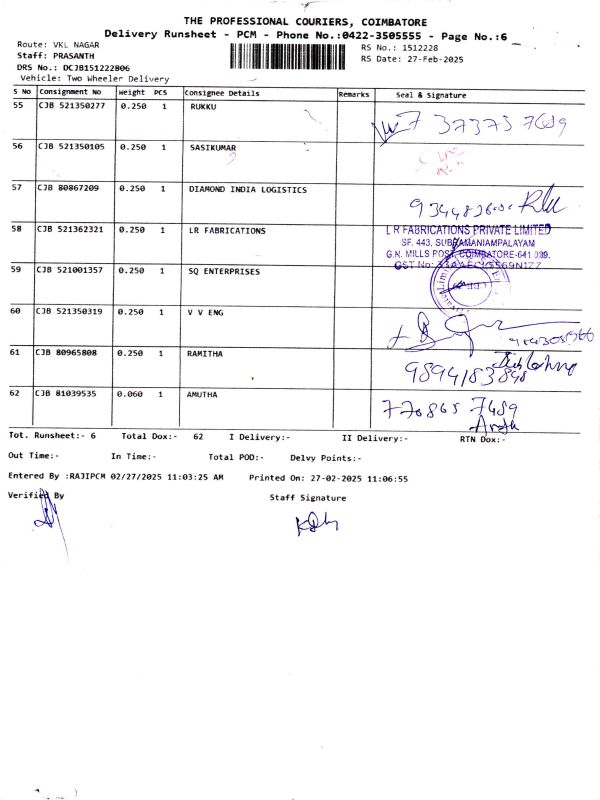 THE PROFESSIONAL COURIERS, COIMBATORE
Delivery Runsheet - PCM - Phone No.:0422-3505555 - Page No.:6
Route: VKL NAGAR
RS No.: 1512228
Staff: PRASANTH
RS Date: 27-Feb-2025
DRS No.: DCJB151222806
Vehicle: Two Wheeler Delivery
S No Consignment No Weight PCS Consignee Details Remarks Seal & Signature
55 CJB 521350277 0.250 1 RUKKU
37373 7689
56 CJB 521350105 0.250 1 SASIKUMAR
57 CJB 80867209 0.250 1 DIAMOND INDIA LOGISTICS
58 CJB 521362321 0.250 1 LR FABRICATIONS
L R FABRICATIONS PRIVATE LIMITED
SF. 443, SUBRAMANIAMPALAYAM
G.N. MILLS POST, COIMBATORE-641 039.
GST No:
59 CJB 521001357 0.250 1 SQ ENTERPRISES
60 CJB 521350319 0.250 1 V V ENG
61 CJB 80965808 0.250 1 RAMITHA
62 CJB 81039535 0.060 1 AMUTHA
770865 7689
Tot. Runsheet:- 6 Total Dox:- 62 I Delivery:- II Delivery:- RTN Dox:-
Out Time:- In Time:- Total POD:- Delvy Points:-
Entered By :RAJIPCM 02/27/2025 11:03:25 AM Printed On: 27-02-2025 11:06:55
Verified By Staff Signature